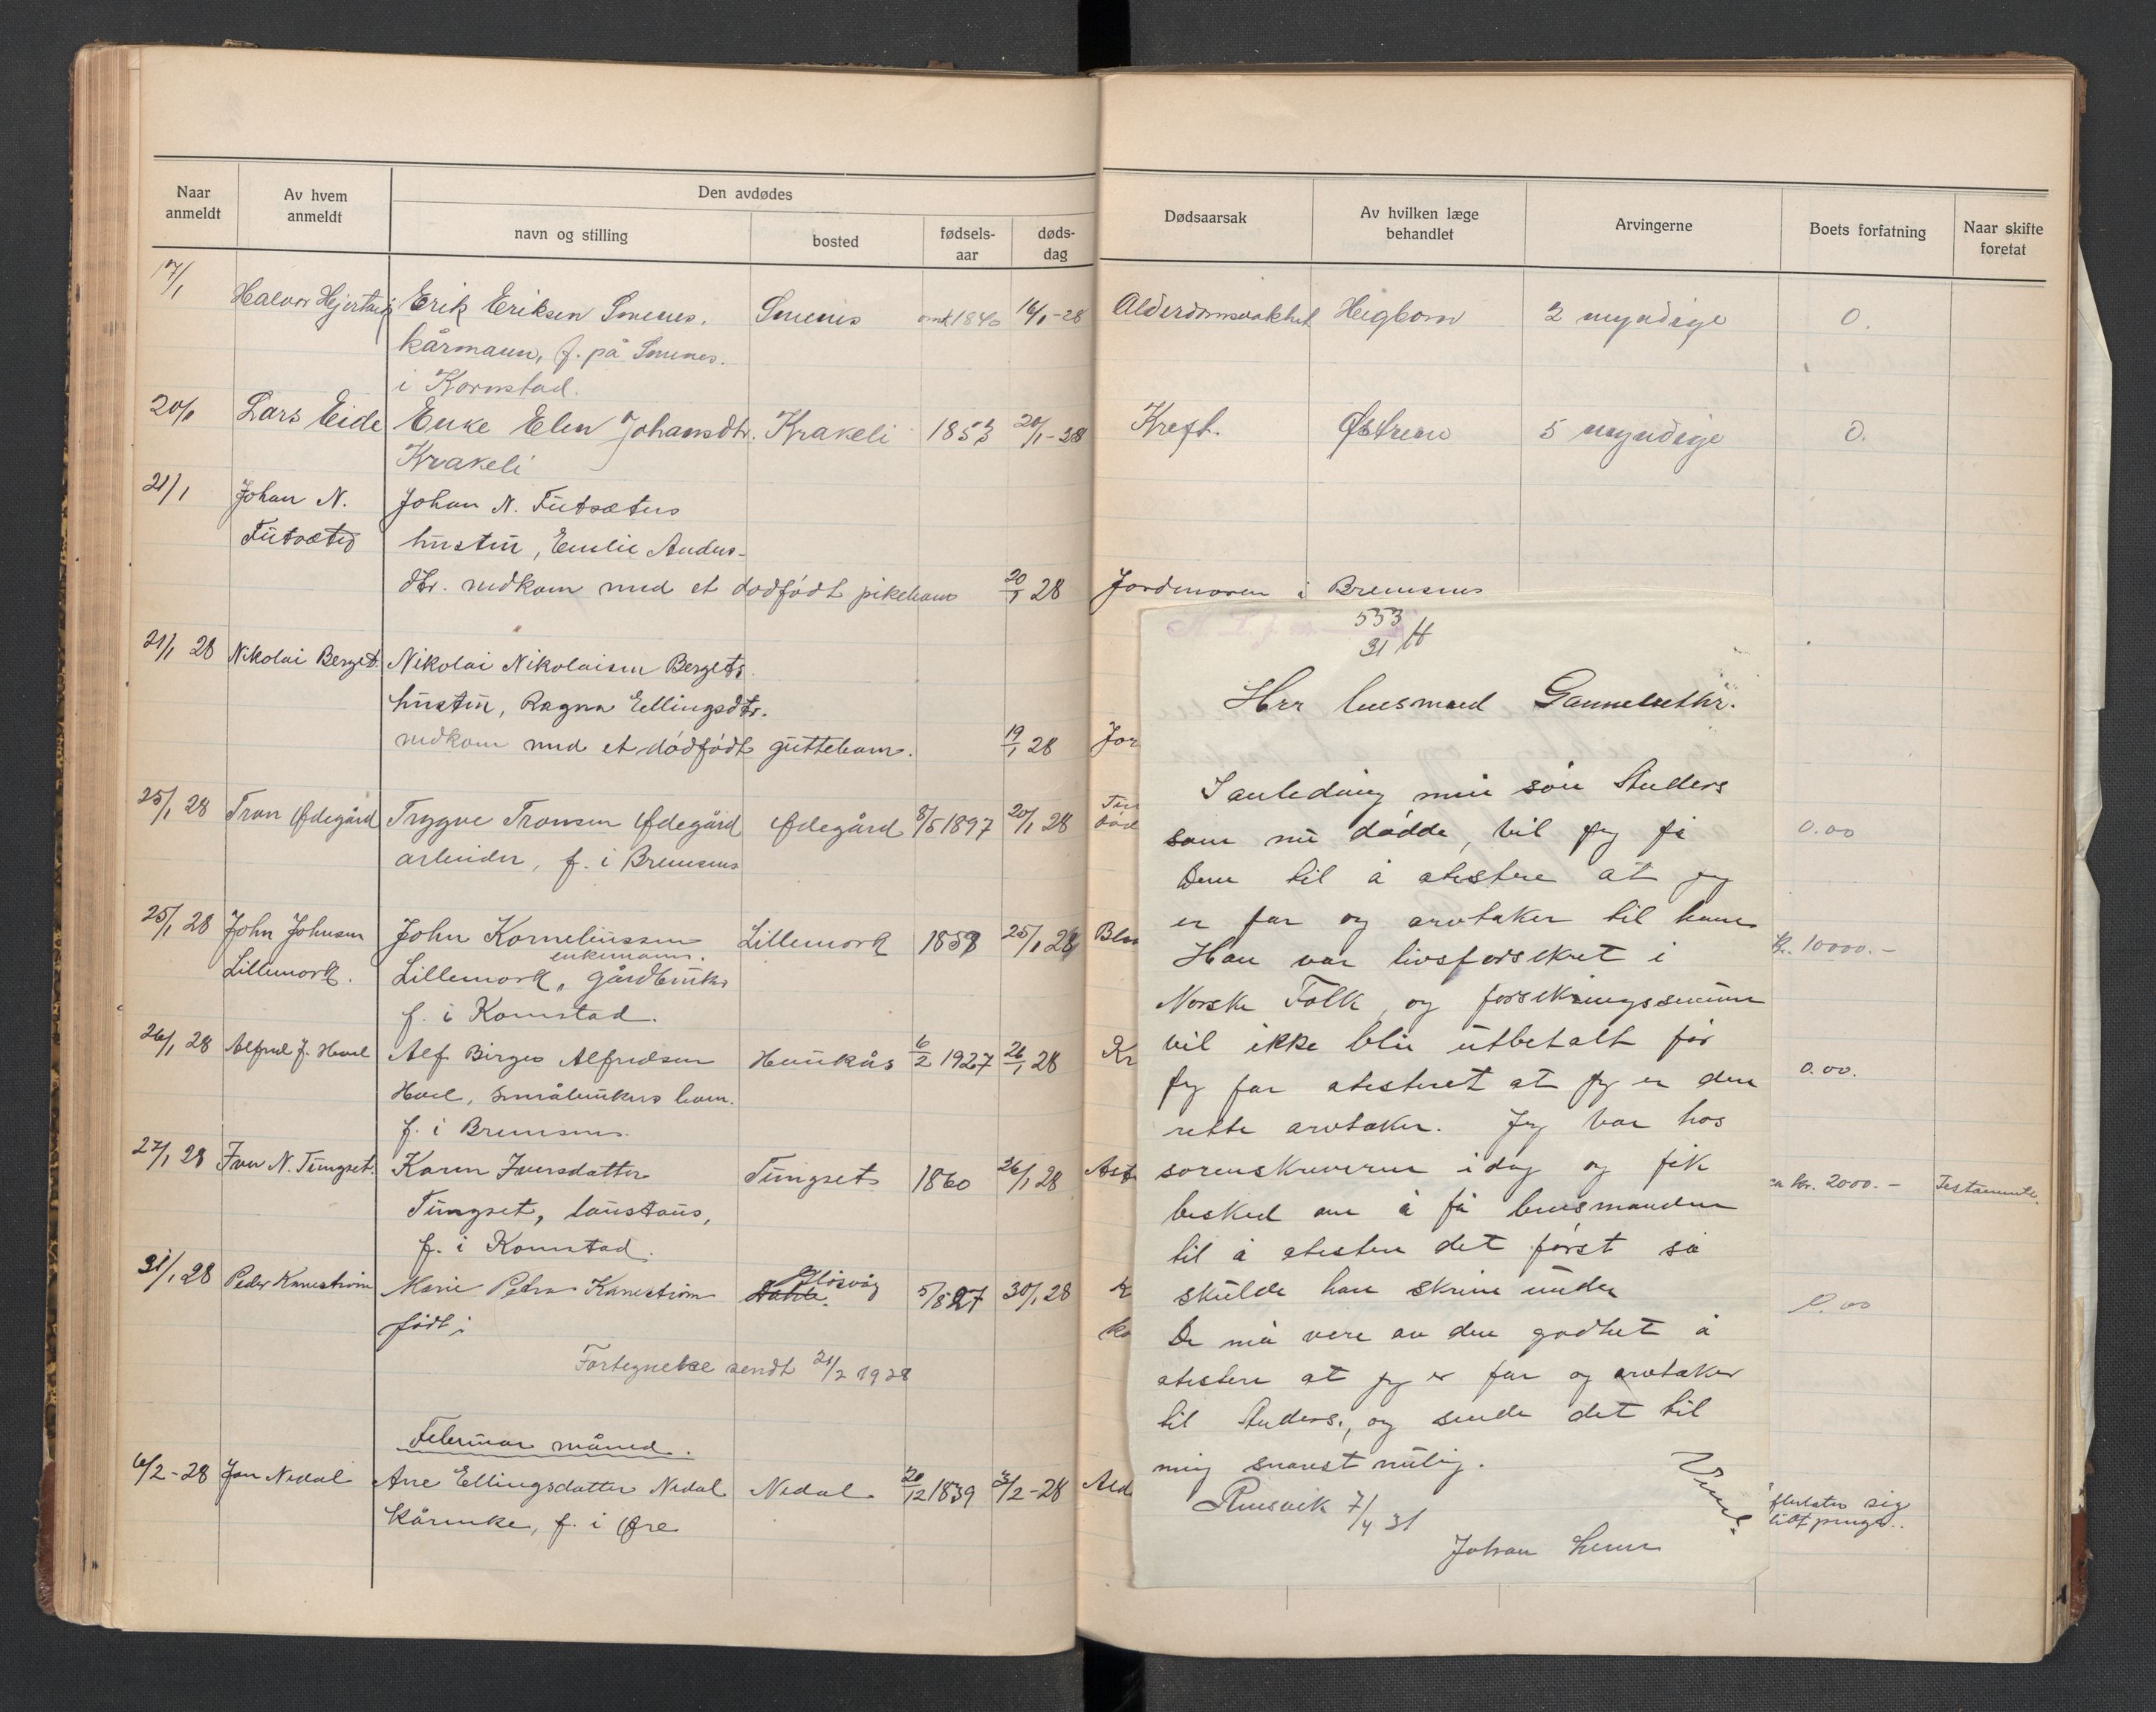 Naar anmeldt
Av hvem anmeldt
Den avdødes
navn og stilling
bosted
fødsels-aar
døds-dag
Dødsaarsak
Av hvilken læge behandlet
Arvingerne
Boets forfatning
Naar skifte foretat
17/1 Halvor Erik Eriksen Smenes. Smenes omk 1840 16/1-28 Alderdomssvakhet 2 myndige 0.
kårmann, f. på Smenes.
i Kornstad.
20/1 Lars Eide Enke Elen Johansdtr. Krakeli 1853 20/1-28 Kreft. Østrem 5 myndige 0.
Krakeli
21/1 Johan N. Johan N. Futsæters
Futsæter hustru, Emilie Anders-
dtr. nedkom med et dødfødt pikebarn 20/1 28 Jordmoren i Bremsnes
21/1 28 Nikolai Berget. Nikolai Nikolaisen Bergets
hustru, Ragna Ellingsdtr.
nedkom med et dødfødt guttebarn. 19/1 28 Jor
25/1 28 Tron Ødegård Trygve Tronsen Ødegård Ødegård 8/5 1897 20/1 28 0.00
arbeider, f. i Bremsnes
25/1 28 John Johnsen John Korneliussen Lillemork 1858 25/1 28 Kr. 10000.-
enkemann.
Lillemork. Lillemork, gårdbruker
f. i Kornstad.
26/1 28 Alfred J. Hoel Alf Birger Alfredsen 6/2 1927 26/1 28 Kr 0.00.
Hoel, småbrukers barn.
f. i Bremsnes.
27/1 28 Iver N. Tungset. Karen Iversdatter Tungset 1860 26/1 28 Ast ca kr. 2000.- Testamente.
Tungset, taustaus,
f. i Kornstad.
31/1 28 Peder Kanestrøm Marie Petra Kanestrøm 30/1 28 0.00
født i
Fortegnelse sendt 21/2 1928
Februar måned.
6/2-28 Jon Nedal Ane Ellingsdatter Nedal Nedal 20/12 1839 3/2-28 Ald
kårenke, f. i Øre
553
31 H
Herr lensmand
I anledning min søn Anders
som nu dødde, vil jeg få
Dem til å atestere at jeg
er far og arvtaker til ham
Han var livsforsikret i
Norske Folk, og forsikringssummen
vil ikke bli utbetalt før
jeg får atesteret at jeg er den
rette arvtaker. Jeg var hos
sorenskriveren idag og fik
besked om å få lensmanden
til å atestere det først så
skulde han skrive under
De må vere av den godhet å
atestere at jeg er far og arvtaker
til Anders, og sende det til
mig snarest mulig.
7/4 31
Johan